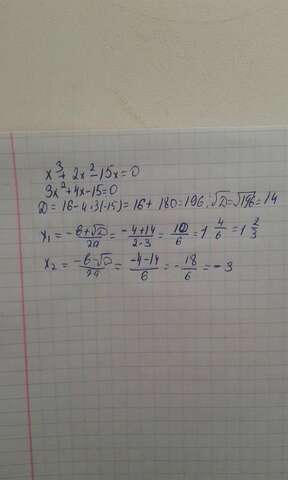 x³+2x²-15x=0
3x²+4x-15=0
D=16-4·3(-15)=16+180=196; √D=√196=14
x₁=-b+√D/2a=-4+14/2·3=10/6=1 4/6=1 2/3
x₂=-b-√D/2a=-4-14/6=-18/6=-3